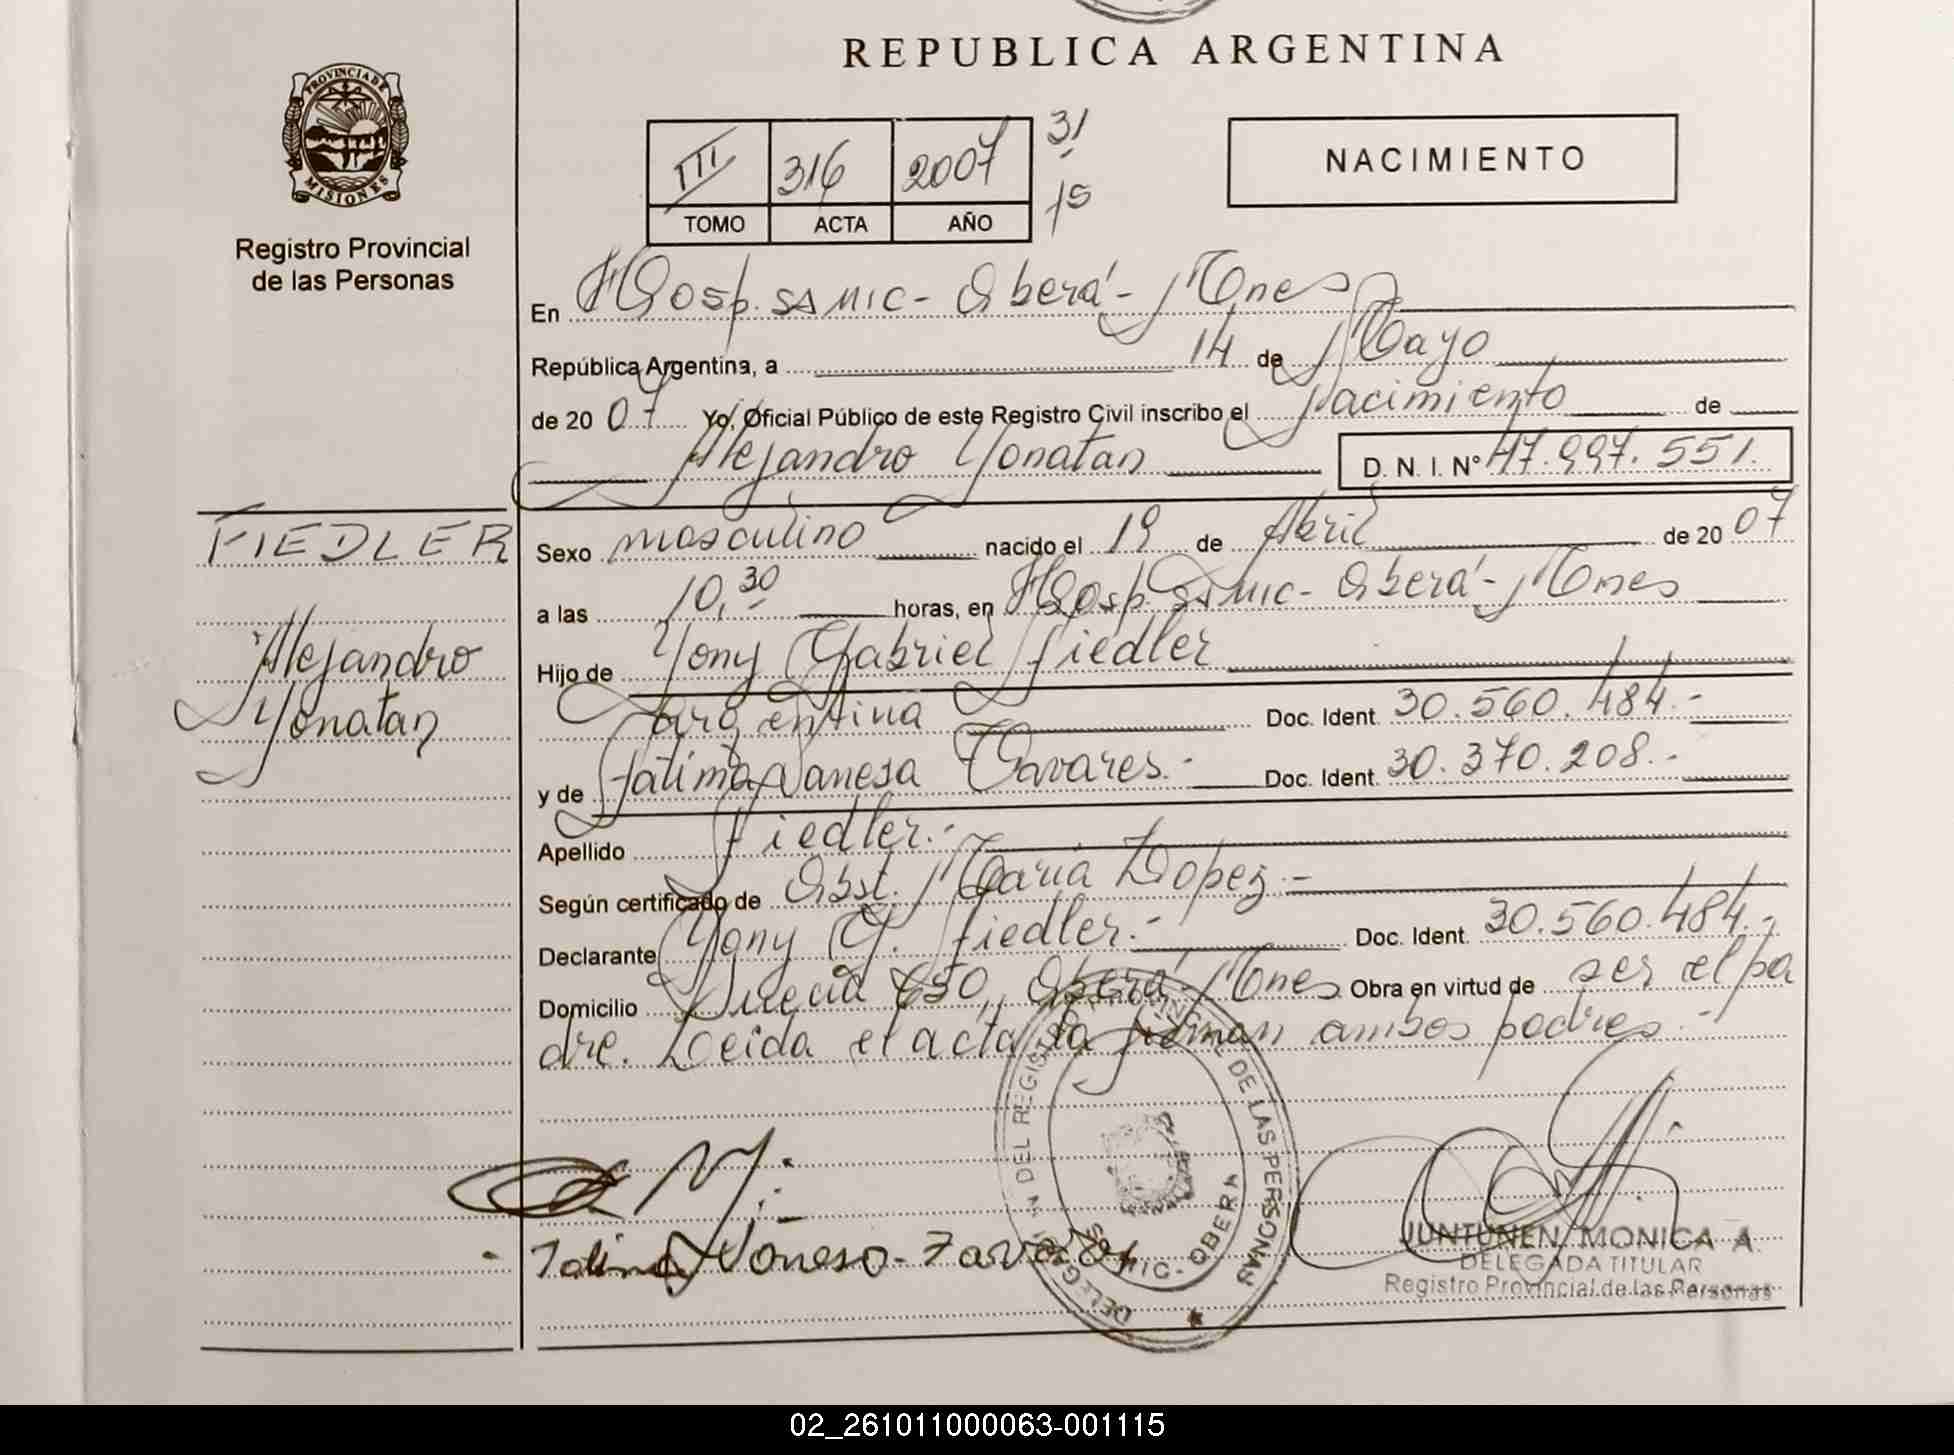 REPUBLICA ARGENTINA
PROVINCIA DE
MISIONES
Registro Provincial
de las Personas
III 316 2007 31
15
TOMO ACTA AÑO
NACIMIENTO
En Hosp. SAMIC - Oberá - Mnes
República Argentina, a 14 de Mayo
de 2007 Yo, Oficial Público de este Registro Civil inscribo el Nacimiento de
Alejandro Yonatan D. N. I. Nº 47.997.551.
FIEDLER
Alejandro
Yonatan
Sexo masculino nacido el 19 de Abril de 2007
a las 10,30 horas, en Hosp. SAMIC - Oberá - Mnes
Hijo de Yony Gabriel Fiedler
argentina Doc. Ident. 30.560.484.-
y de Fatima Vanesa Tavares.- Doc. Ident. 30.370.208.-
Apellido Fiedler.-
Según certificado de Obst. Maria Lopez.-
Declarante Yony G. Fiedler.- Doc. Ident. 30.560.484.-
Domicilio Suecia 650, Oberá - Mnes Obra en virtud de ser el pa
dre. Leida el acta la firman ambos padres.-
DELEGACION DEL REGISTRO PROVINCIAL DE LAS PERSONAS
SAMIC - OBERA
JUNTUNEN, MONICA A.
DELEGADA TITULAR
Registro Provincial de las Personas
02_261011000063-001115